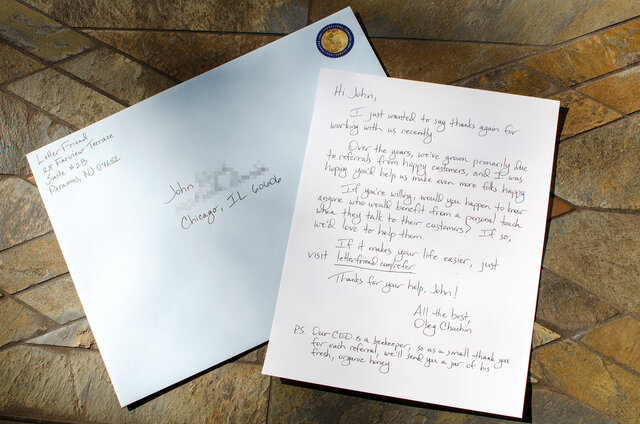 Letter Friend
25 Fairview Terrace
Suite #2B
Paramus, NJ 07652
John
Chicago, IL 60606
Hi John,
I just wanted to say thanks again for
working with us recently.
Over the years, we've grown primarily due
to referrals from happy customers, and I was
hoping you'd help us make even more folks happy.
If you're willing, would you happen to know
anyone who would benefit from a personal touch
when they talk to their customers? If so,
we'd love to help them.
If it makes your life easier, just
visit letterfriend.com/refer
Thanks for your help, John!
All the best,
Oleg Chuchin
P.S. Our CEO is a beekeeper, so as a small thank you
for each referral, we'll send you a jar of his
fresh, organic honey.